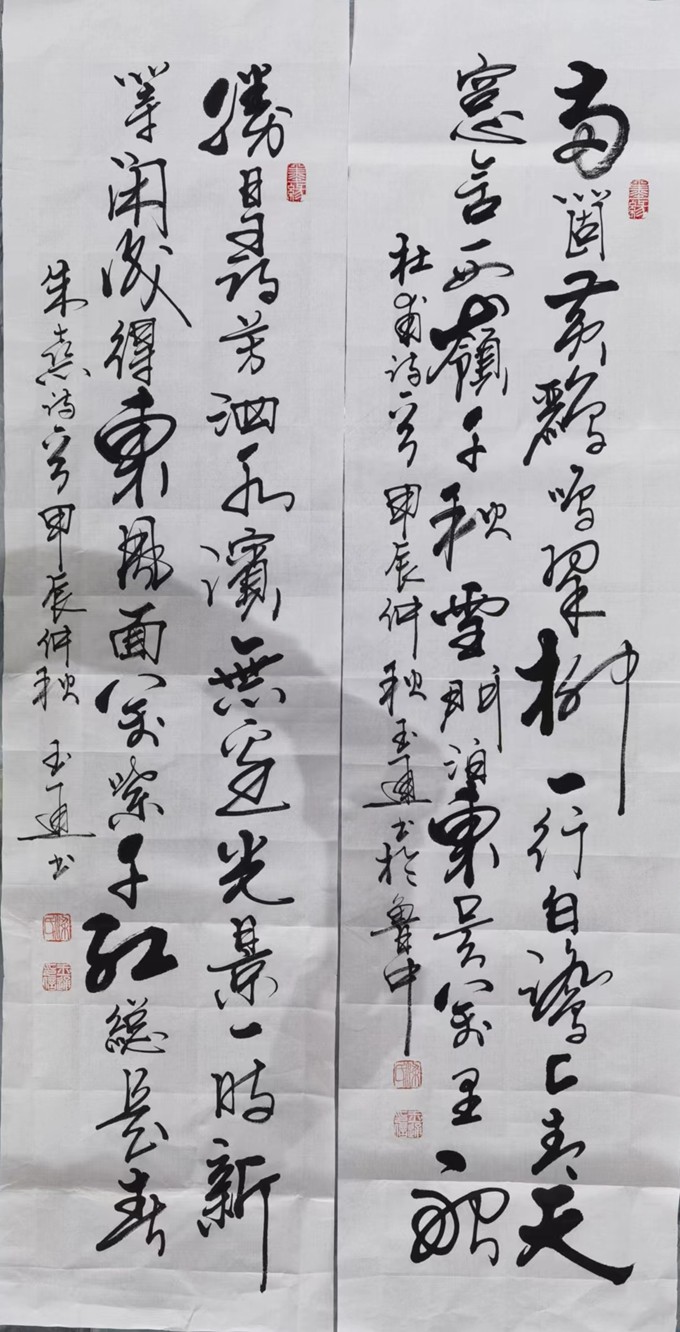 兩箇黃鸝鳴翠柳一行白鷺上青天
窓含西嶺千秋雪門泊東吳萬里船
杜甫诗一首 甲辰仲秋玉书於魯中
勝日尋芳泗水濱無邊光景一時新
等閑識得東風面萬紫千紅總是春
朱熹诗一首甲辰仲秋 玉书